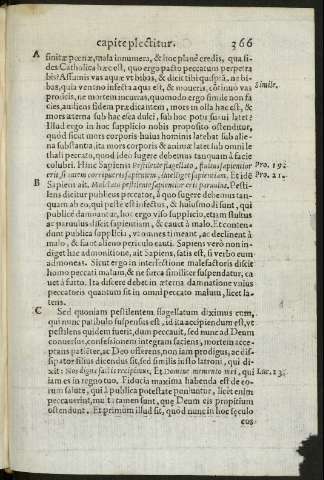 capite plectitur. 366
A finitæ pœnæ, mala innumera, & hoc planè credis, qua fi-
des Catholica hæc est, quo ergo pacto peccatum perpetra
bis? Assumis vas aquæ vt bibas, & dicit tibi quispiã, ne bi-
bas, quia veneno infecta aqua est, & moueris, cõtinuo vas
proijcis, ne mortem incurras, quomodo ergo simile non fa Simile.
cies, audiens fidem prædicantem, mors in olla hac est, &
mors æterna sub hac esca dulci, sub hoc potu suaui latet?
Illud ergo in hoc supplicio nobis proposito ostenditur,
quòd sicut mors corporis huius hominis latebat sub alie-
na substantia, ita mors corporis & animæ latet sub omni le
thali peccato, quod ideo fugere debemus tanquam à facie
colubri. Hinc Sapiens Pestilente flagellato, stultus sapientior Pro. 19.
erit, si autem corripueris sapientem, intelliget sapientiam. Et idẽ Pro. 21.
B Sapiens ait. Mulctato pestilente sapientior erit paruulus. Pesti-
lens dicitur publicus peccator, à quo fugere debemus tan-
quam ab eo, qui peste est infectus, & huiusmodi sunt, qui
publicè damnantur, hoc ergo viso supplicio, etiam stultus
ac paruulus discit sapientiam, & cauet à malo. Et conten-
dunt publica supplicia, vt omnes timeant, ac declinent à
malo, & fiant alieno periculo cauti. Sapiens verò non in-
diget hac admonitione, ait Sapiens, satis est, si verbo eum
admoneas. Sicut ergo in interfectione malefactoris discit
homo peccati malum, & ne furca similiter suspendatur, ca
uet à furto. Ita discere debet in æterna damnatione huius
peccatoris quantum sit in omni peccato malum, licet la-
tens.
C Sed quoniam pestilentem flagellatum diximus eum,
qui nunc patibulo suspensus est, id ita accipiendum est, vt
pestilens quidem fuerit, dum peccauit, sed nunc ad Deum
conuersus, confessionem integram faciens, mortem acce-
ptans patienter, ac Deo offerens, non iam prodigus, ac dis-
sipator istius dicendus sit, sed similis iusto latroni, qui di-
xit: Nos digna factis recipimus, Et Domine memento mei, qui Luc. 23.
iam es in regno tuo. Fiducia maxima habenda est de eo-
rum salute, qui à publica potestate puniuntur, licet enim
peccauerint, multi tamen sunt, quę Deum eis propitium
ostendunt. Et primum illud sit, quod nunc in hoc sęculo
eos